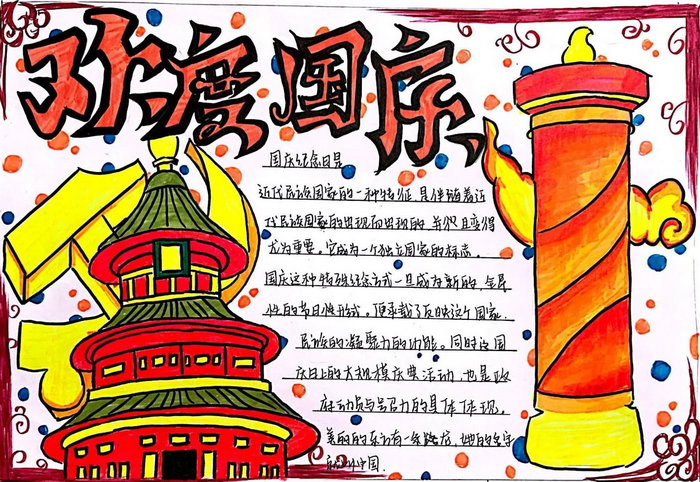 欢度国庆
国庆纪念日是
近代民族国家的一种特征,是伴随着近
代民族国家的出现而出现的,并且变得
尤为重要。它成为一个独立国家的标志,
国庆这种特殊纪念方式一旦成为新的、全民
性的节日性形式,便承载了反映这个国家、
民族的凝聚力的功能。同时这国
庆日上的大规模庆典活动,也是政
府动员与号召力的具体体现。
美丽的东方有一条龙,她的名字
就叫中国.